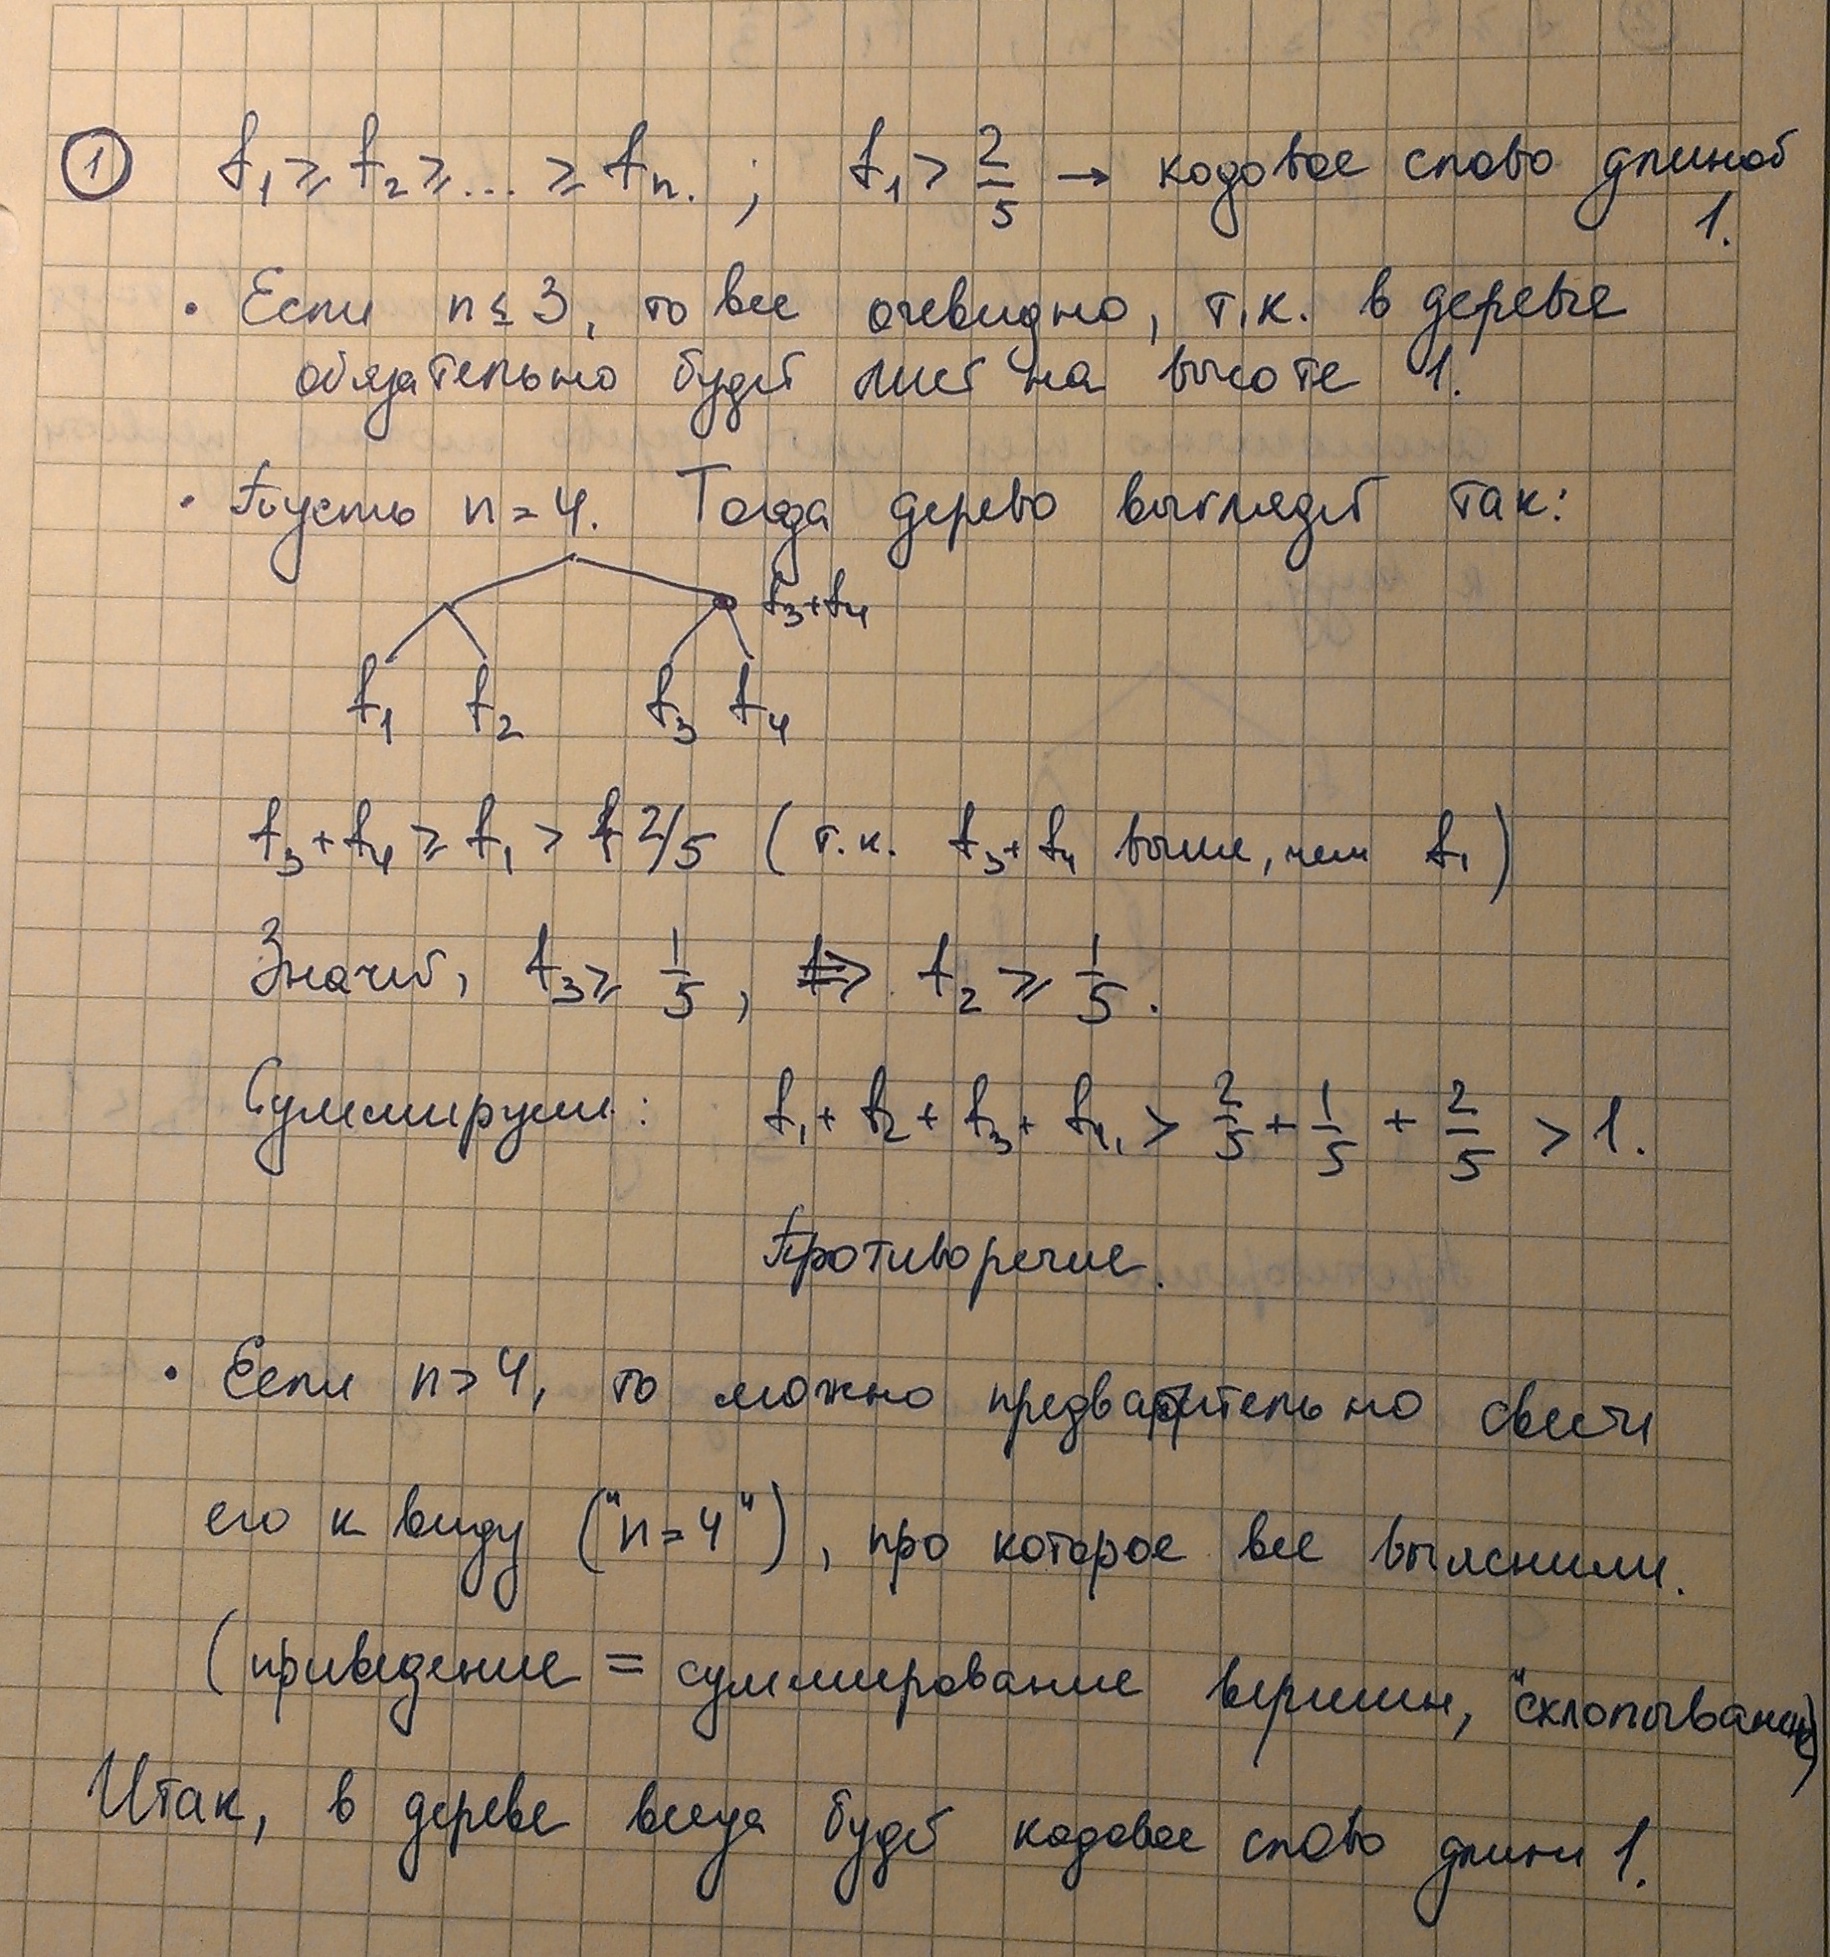 ① f₁ ≥ f₂ ≥ ... ≥ fₙ. ; f₁ > 2/5 → кодовое слово длиной
1.
• Если n ≤ 3, то все очевидно, т.к. в дереве
обязательно будет лист на высоте 1.
• Пусть n = 4. Тогда дерево выглядит так:
f₃+f₄
f₁ f₂ f₃ f₄
f₃ + f₄ ≥ f₁ > 2/5 (т.к. f₃+f₄ выше, чем f₁)
Значит, f₃ ≥ 1/5, ⇒ f₂ ≥ 1/5.
Суммируем: f₁ + f₂ + f₃ + f₄ > 2/5 + 1/5 + 2/5 > 1.
Противоречие.
• Если n > 4, то можно предварительно свести
его к виду ("n = 4"), про которое все выяснили.
(приведение = суммирование вершин, "схлопывание)
Итак, в дереве всегда будет кодовое слово длины 1.